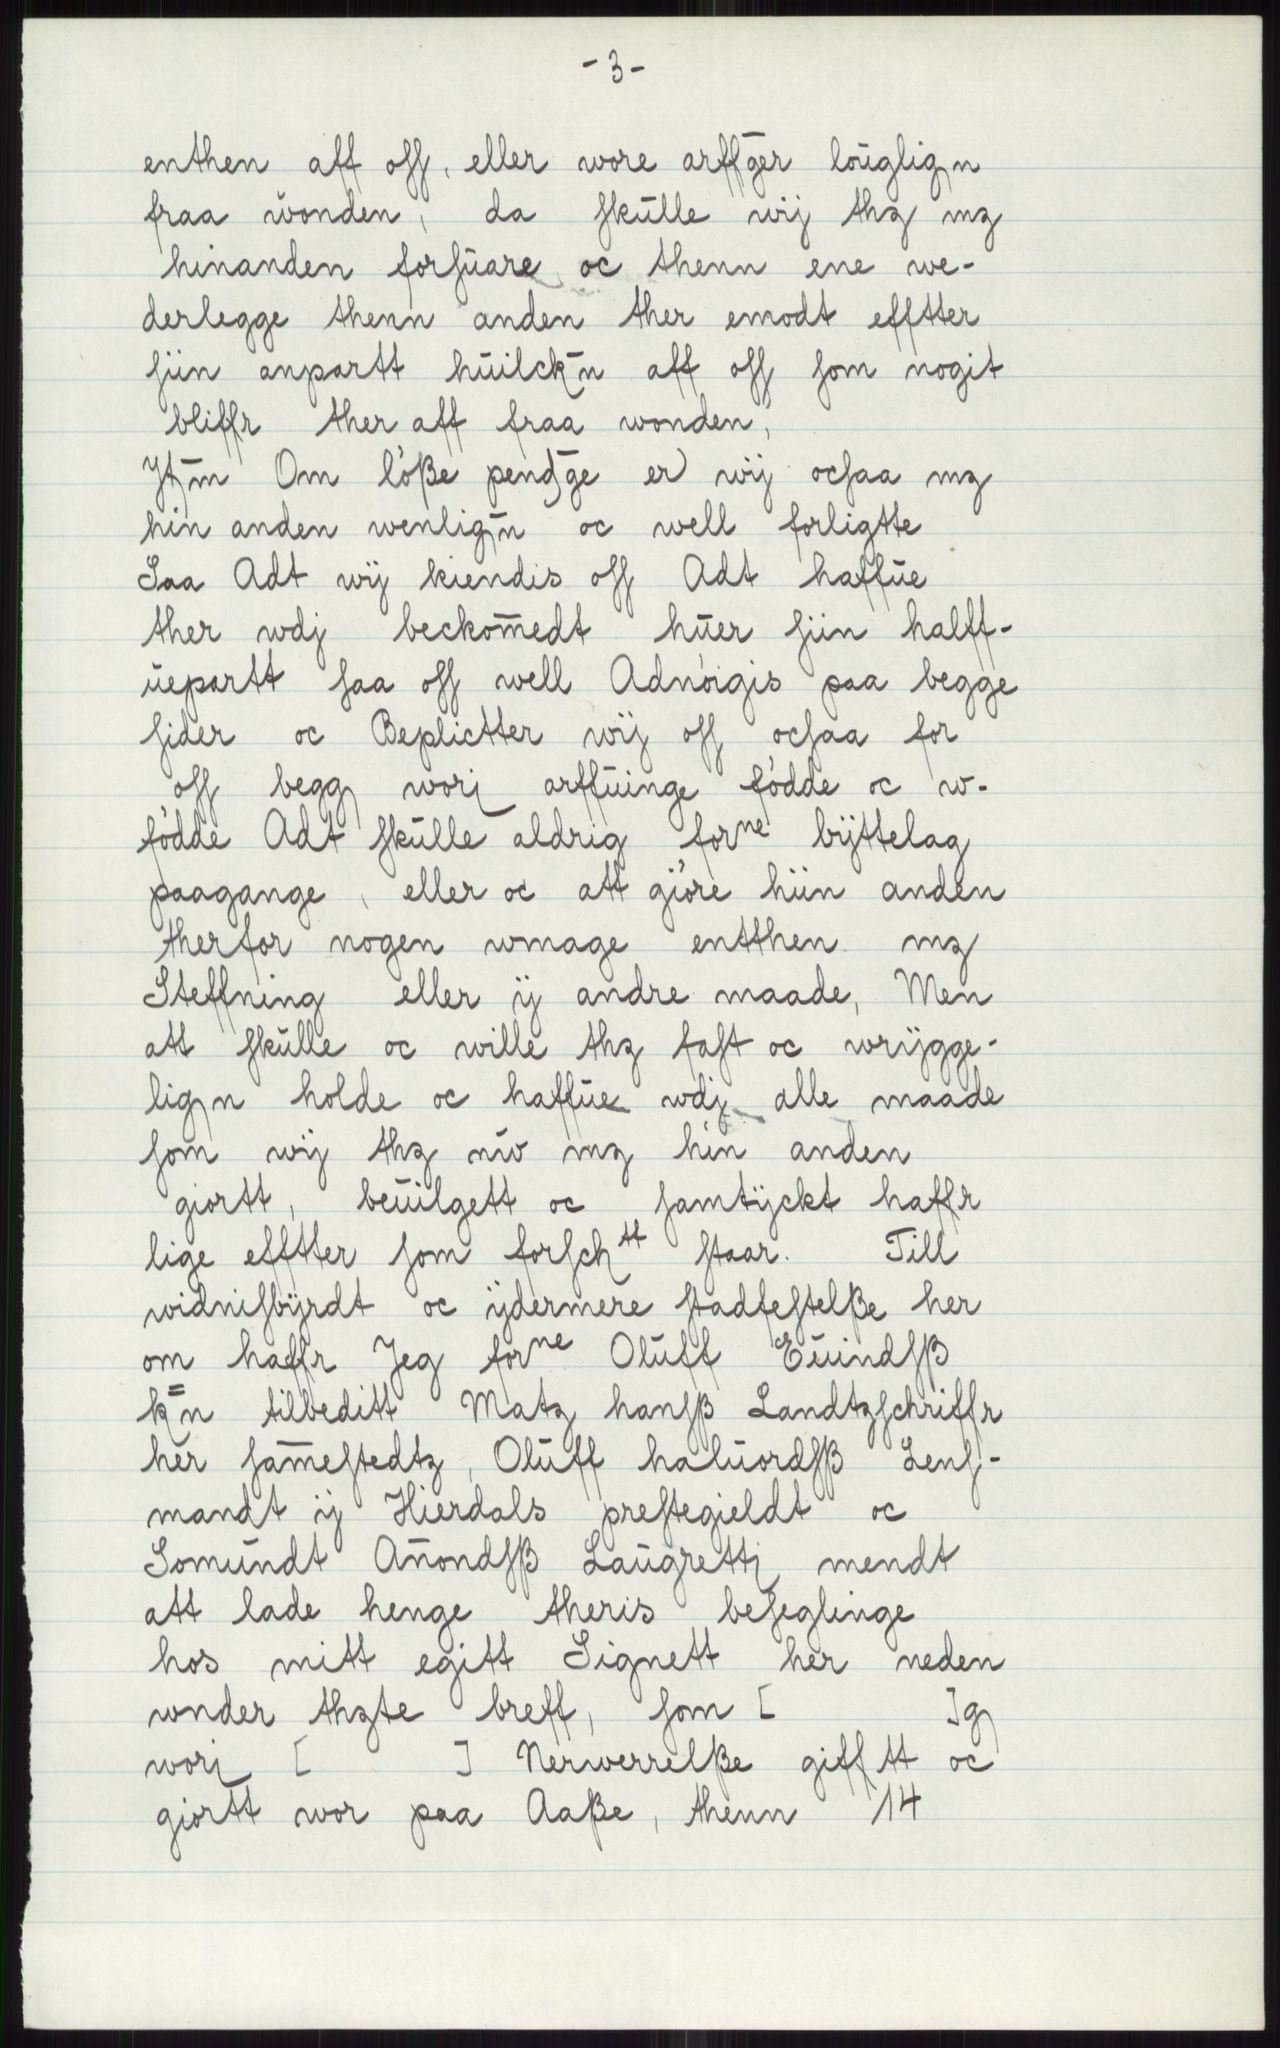 - 3 -
enthen aff oſſ, eller wore arffg̅er loŭglign
fraa wŏnden, da ſkŭlle wij thz mz
hinanden forſŭare oc thenn ene we-
derlegge thenn anden ther emodt efftter
ſiin anpartt hŭilck̅n aff oſſ ſom nogit
bliffr ther aff fraa wonden,
Jt̅m Om lòße pend̅ge er wij ocſaa mz
hin anden wenlig̅n oc well forligtte
Saa Adt wij kiendis oſſ Adt haffŭe
ther wdj beckom̅edt hŭer ſiin halff-
ŭepartt ſaa oſſ well Adnòigis paa begge
ſider oc Beplictter wij oſſ ocſaa for
oſſ begg worj arffŭinge fòdde oc w-
fòdde Adt ſkŭlle aldrig forⁿᵉ bÿttelag
paagange, eller oc att giòre hiin anden
therfor nogen wmage entthen mz
Steffning eller ij andre maade, Men
att ſkŭlle oc wille thz faſt oc wrÿgge-
lign holde oc haffŭe wdj alle maade
ſom wij thz nŭ mz hin anden
giortt, beŭilgett oc ſamtÿckt haffr
lige efftter ſom forſchᵗᵗ ſtaar. Till
widniſbÿrdt oc ÿdermere ſtadfeſtelße her
om haffr Jeg forⁿᵉ Olŭff Eŭindſß
k̿n tilbeditt Matz hanſß Landtzſchriffr
her ſam̅eſtedtz, Olŭff halŭordſß Lenſ-
mandt ij Hierdals preſtegieldt oc
Somŭndt An̅ondſß Laŭgrettj mendt
att lade henge theris beſeglinge
hos mitt egitt Signett her neden
wnder thzte breff, ſom [ ]g
worj [ ] Nerwerrelße gifftt oc
giortt wor paa Aaße, thenn 14